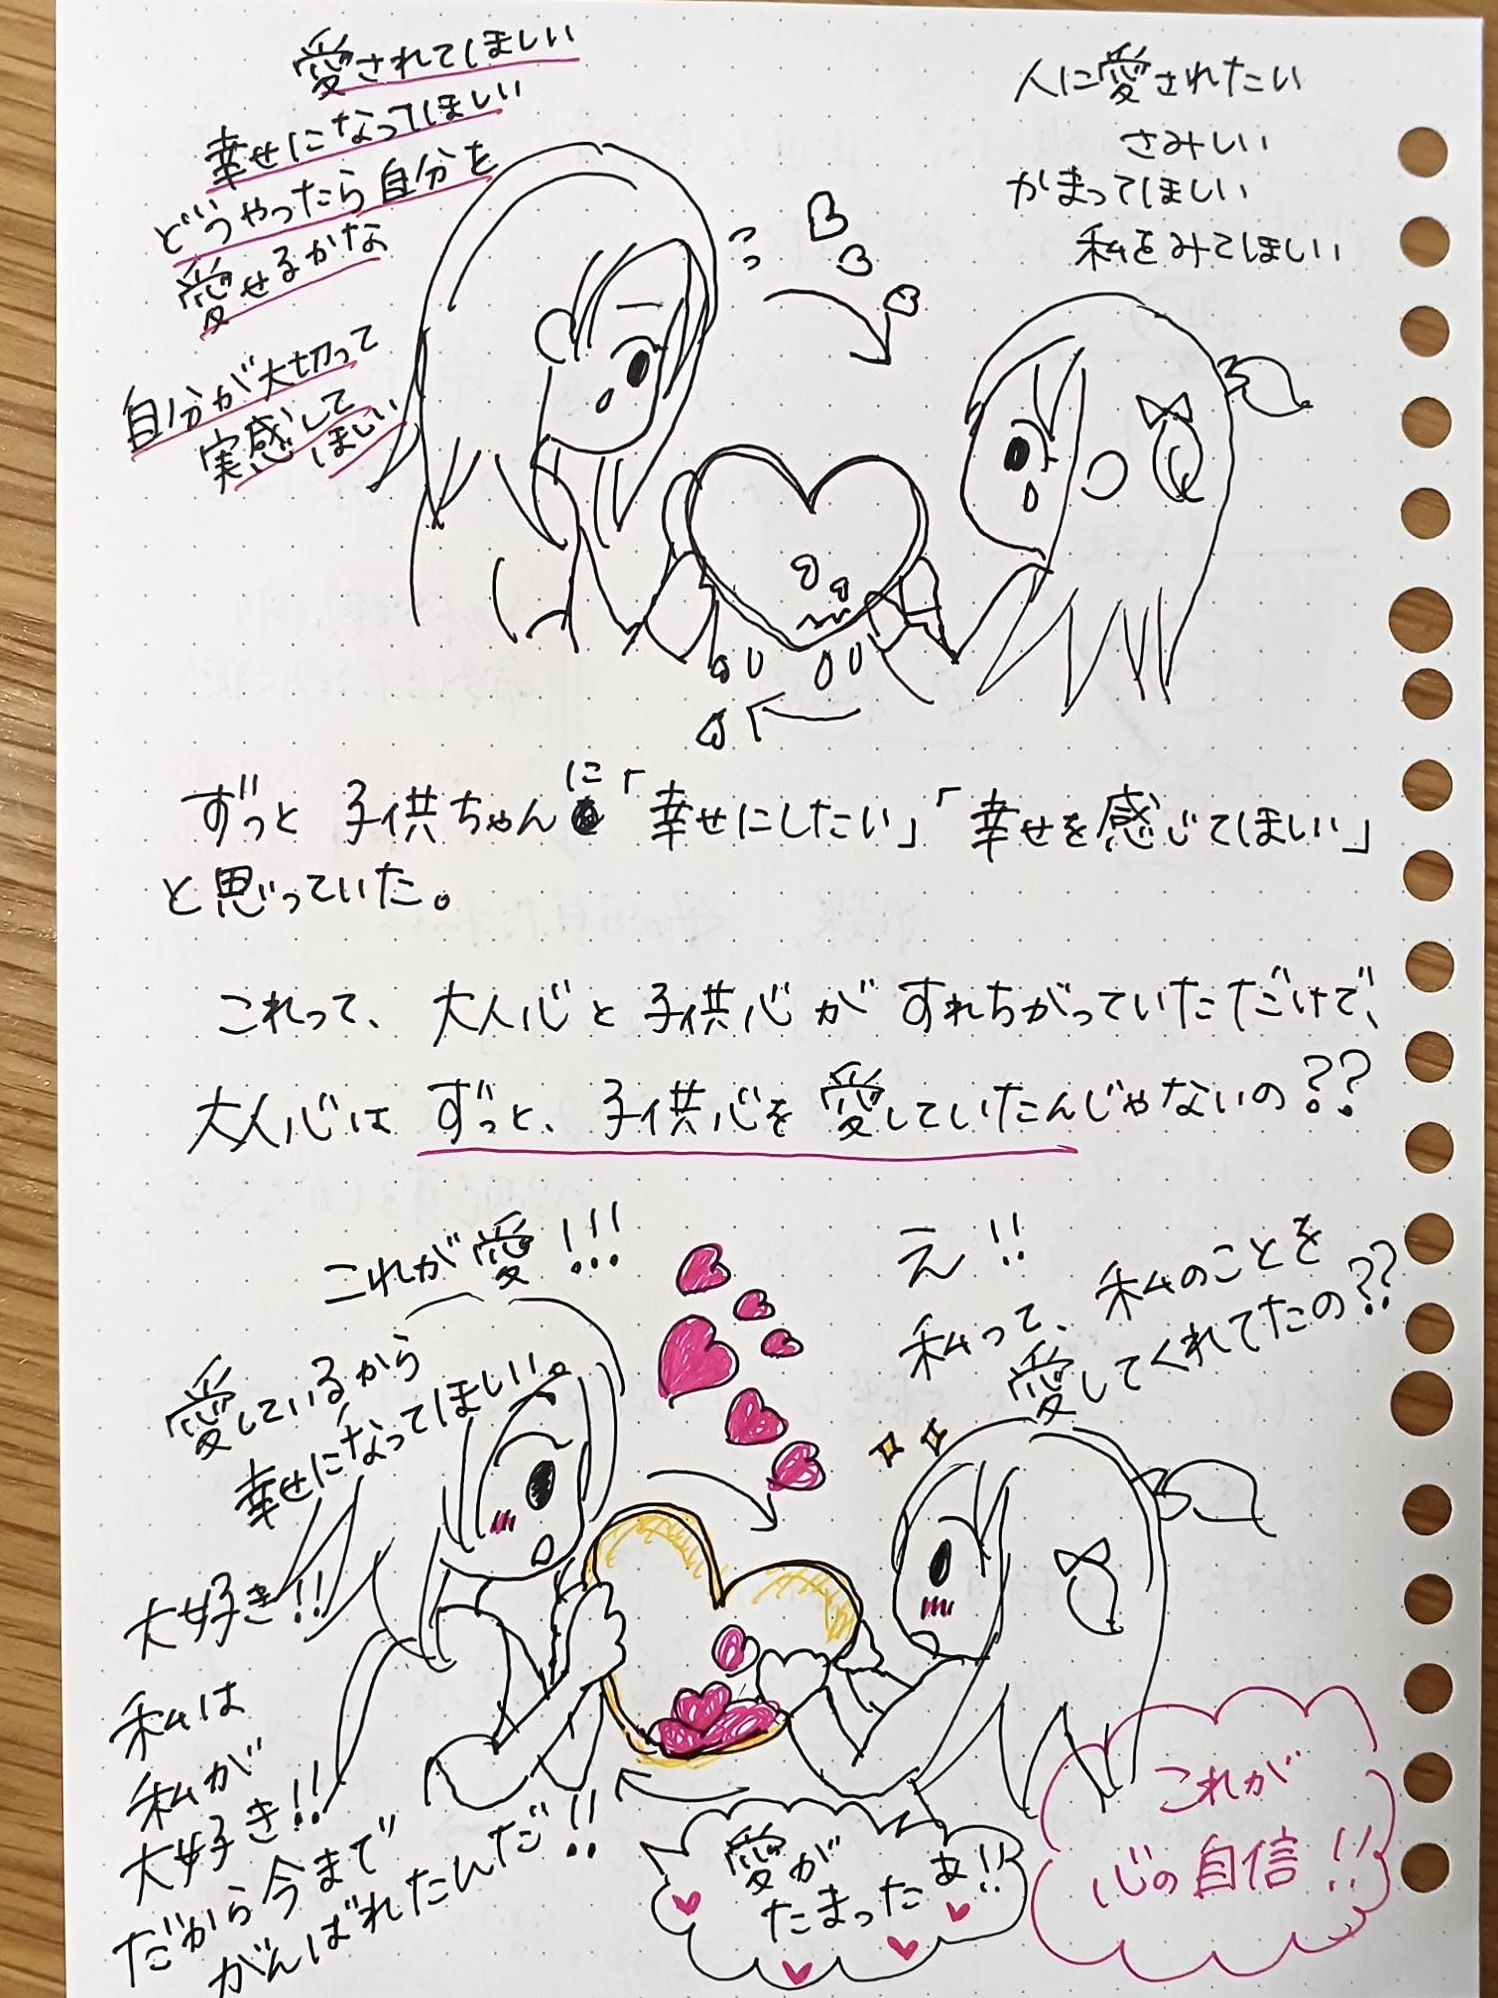 愛されてほしい
幸せになってほしい
どうやったら自分を
愛せるかな
自分が大切って
実感して
ほしい
人に愛されたい
さみしい
かまってほしい
私をみてほしい
ずっと子供ちゃんに「幸せにしたい」「幸せを感じてほしい」
と思っていた。
これって、大人心と子供心がすれちがっていただけで、
大人心はずっと、子供心を愛していたんじゃないの??
これが愛!!!
愛しているから
幸せになってほしい。
大好き!!
私は
私が
大好き!!
だから今まで
がんばれたんだ!!
え!!
私って、私のことを
愛してくれてたの??
愛が
たまったぁ!!
これが
心の自信!!